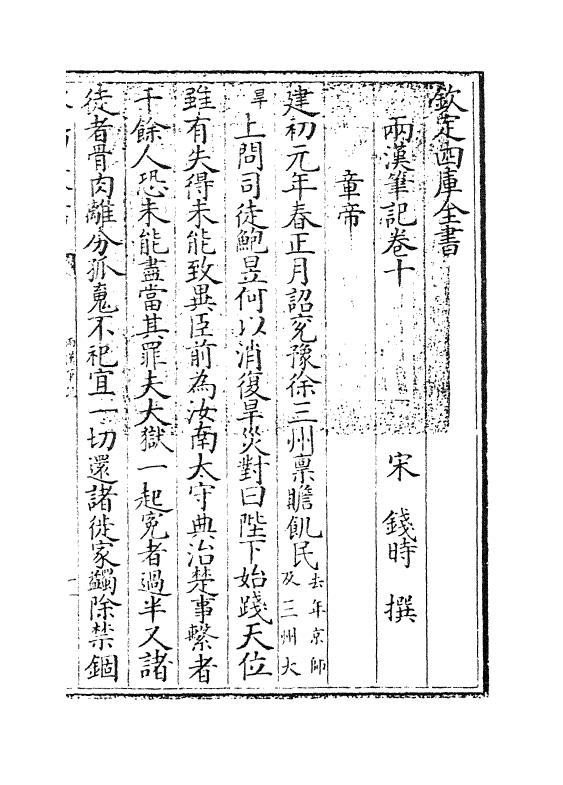 欽定四庫全書
兩漢筆記卷十
宋 錢時 撰
章帝
建初元年春正月詔兖豫徐三州稟贍飢民去年京師及三州大
旱上問司徒鮑昱何以消復旱災對曰陛下始踐天位
雖有失得未能致異臣前為汝南太守典治楚事繫者
千餘人恐未能盡當其罪夫大獄一起冤者過半又諸
徒者骨肉離分孤䰟不祀宜一切還諸徙家蠲除禁錮